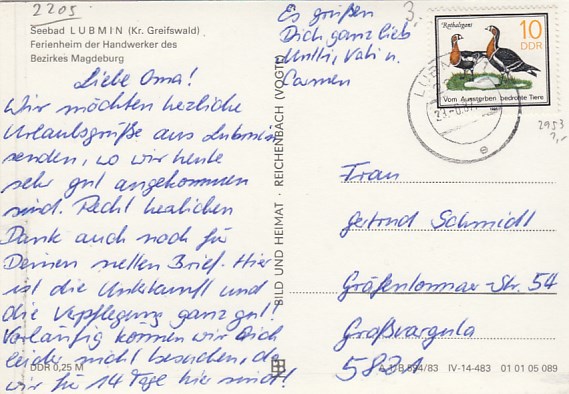 2205
Seebad LUBMIN (Kr. Greifswald)
Ferienheim der Handwerker des
Bezirkes Magdeburg
Liebe Oma!
Wir möchten herzliche
Urlaubsgrüße aus Lubmin
senden, wo wir heute
sehr gut angekommen
sind. Recht herzlichen
Dank auch noch für
Deinen netten Brief. Hier
ist die Unterkunft und
die Verpflegung ganz gut!
Vorläufig können wir Dich
leider nicht besuchen, da
wir für 14 Tage hier sind!
Es grüßen
Dich ganz lieb
Mutti, Vati u.
Carmen
DDR 0,25 M
BILD UND HEIMAT · REICHENBACH (VOGTL)
3.
Rothalsgans
10
DDR
Vom Aussterben bedrohte Tiere
LUBM
2953
Frau
Gertrud Schmidt
Gräfentonnaer-Str. 54
Großvargula
5821
A 1/B 594/83 IV-14-483 01 01 05 089